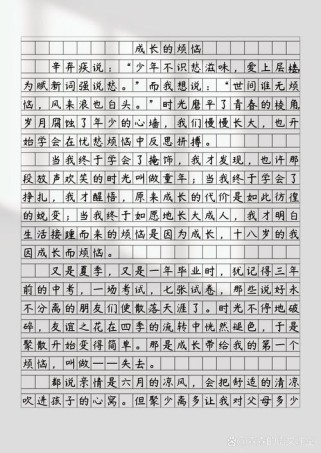 成长的烦恼
辛弃疾说：“少年不识愁滋味，爱上层楼
为赋新词强说愁。”而我想说：“世间谁无烦
恼，风来浪也白头。”时光磨平了青春的棱角
岁月腐蚀了年少的心墙，我们慢慢长大，也开
始学会在忧愁烦恼中反思拼搏。
当我终于学会了掩饰，我才发现，也许那
段放声欢笑的时光叫做童年；当我终于学会了
挣扎，我才醒悟，原来成长的代价是如此彷徨
的蜕变；当我终于如愿地长大成人，我才明白
生活接踵而来的烦恼是因为成长，十八岁的我
因成长而烦恼。
又是夏季，又是一年毕业时，犹记得三年
前的中考，一场考试，七张试卷，那些说好永
不分离的朋友们便散落天涯了。时光不停地破
碎，友谊之花在四季的流转中恍然褪色，于是
聚散开始变得简单。那是成长带给我的第一个
烦恼，叫做——失去。
都说亲情是六月的凉风，会把舒适的清凉
吹进孩子的心窝。但聚少离多让我对父母多少